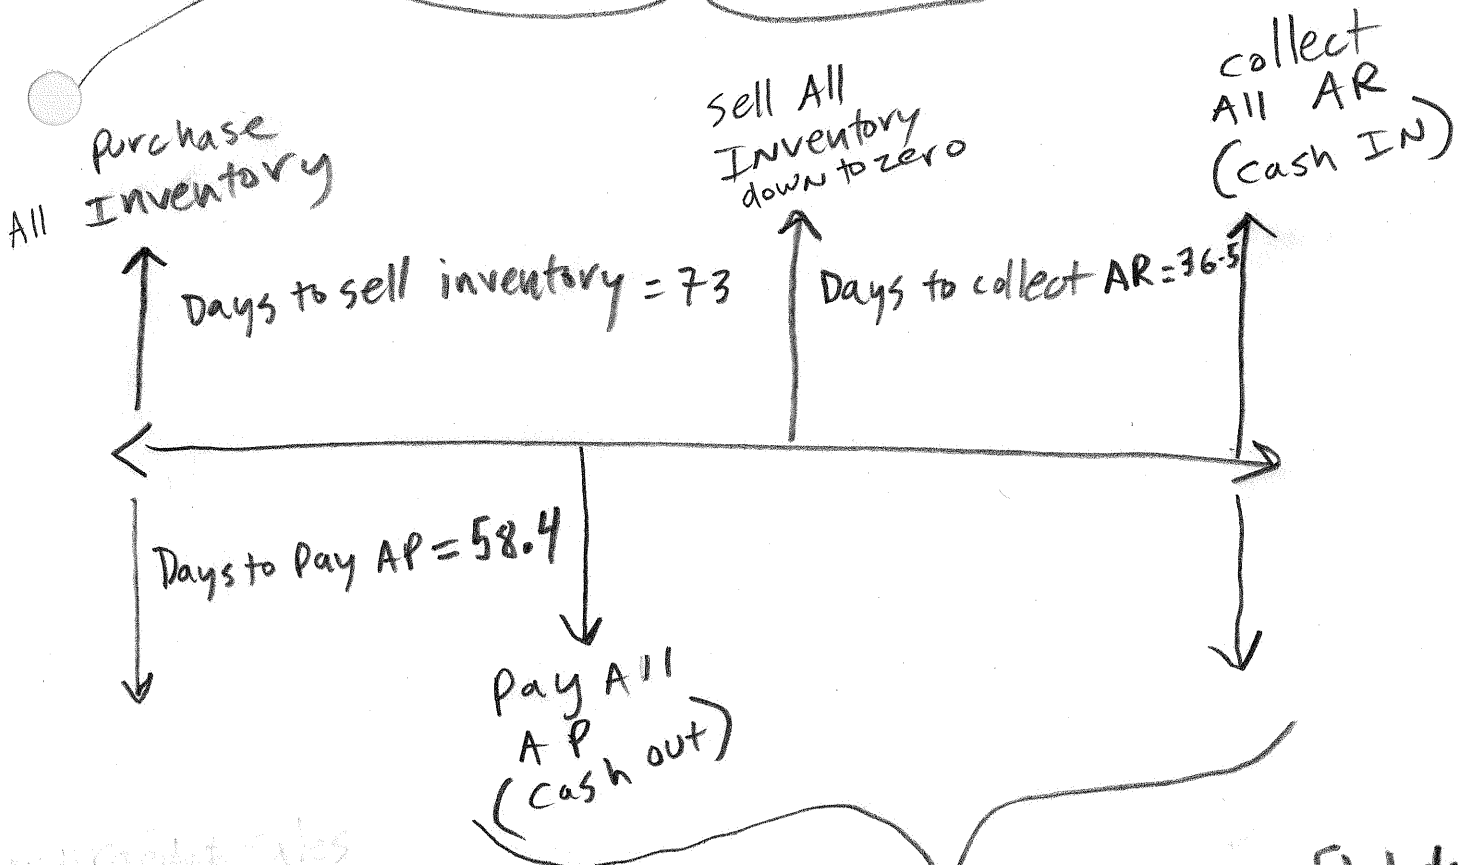 Purchase
All Inventory
Sell All
Inventory
down to zero
collect
All AR
(cash IN)
Days to sell inventory = 73
Days to collect AR = 36.5
Days to Pay AP = 58.4
Pay All
AP
(cash out)